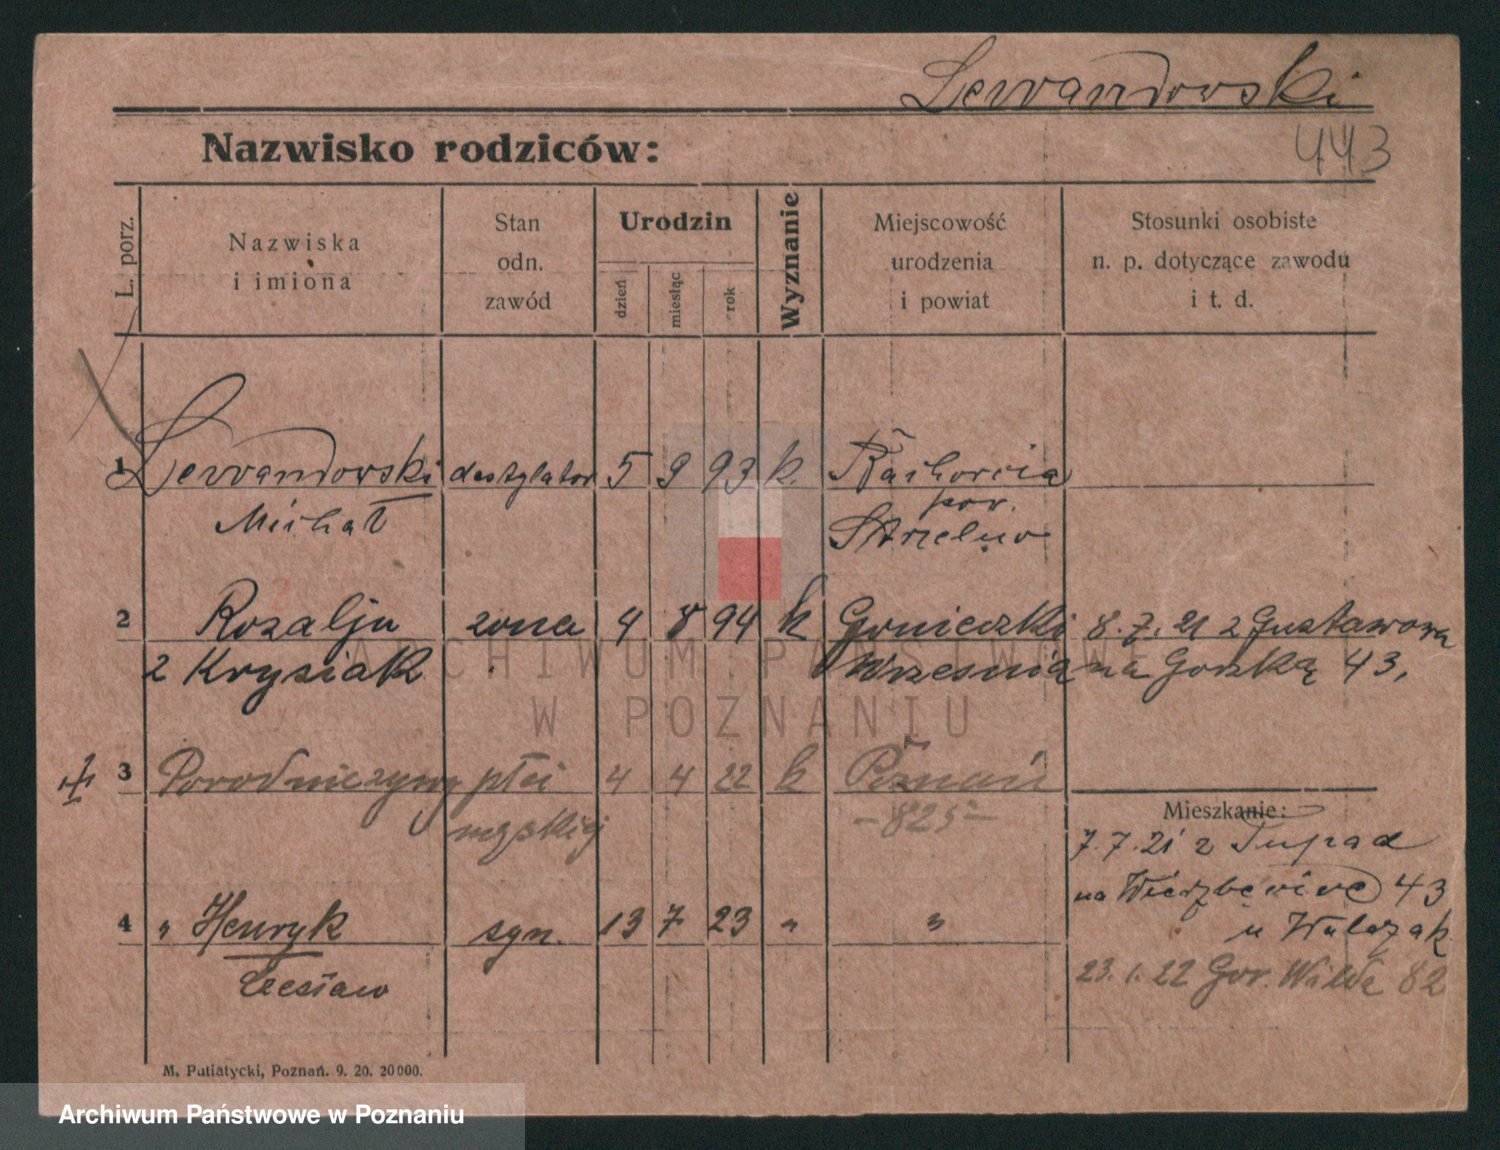 Lewandowski
443
Nazwisko rodziców:
L. porz.
Nazwiska
i imiona
Stan
odn.
zawód
Urodzin
dzień
miesiąc
rok
Wyznanie
Miejscowość
urodzenia
i powiat
Stosunki osobiste
n. p. dotyczące zawodu
i t. d.
1 Lewandowski destylator 5 9 93 k.
Michał
pow.
Strzelno
2 Rozalja żona 4 8 94 k Goniczki 8.7.21 z Gustawowa
z Krysiak Września na Gorką 43,
3 płci 4 4 22 k Poznań
męskiej - 825 -
Mieszkanie:
7.7.21 z Tupad
na Wierzbięcice 43
4 " Henryk syn. 13 7 23 " "
u Walczak
Czesław
23.1.22 Gór. Wilda 82
M. Putiatycki, Poznań. 9. 20. 20000.
ARCHIWUM PAŃSTWOWE
W POZNANIU
Archiwum Państwowe w Poznaniu